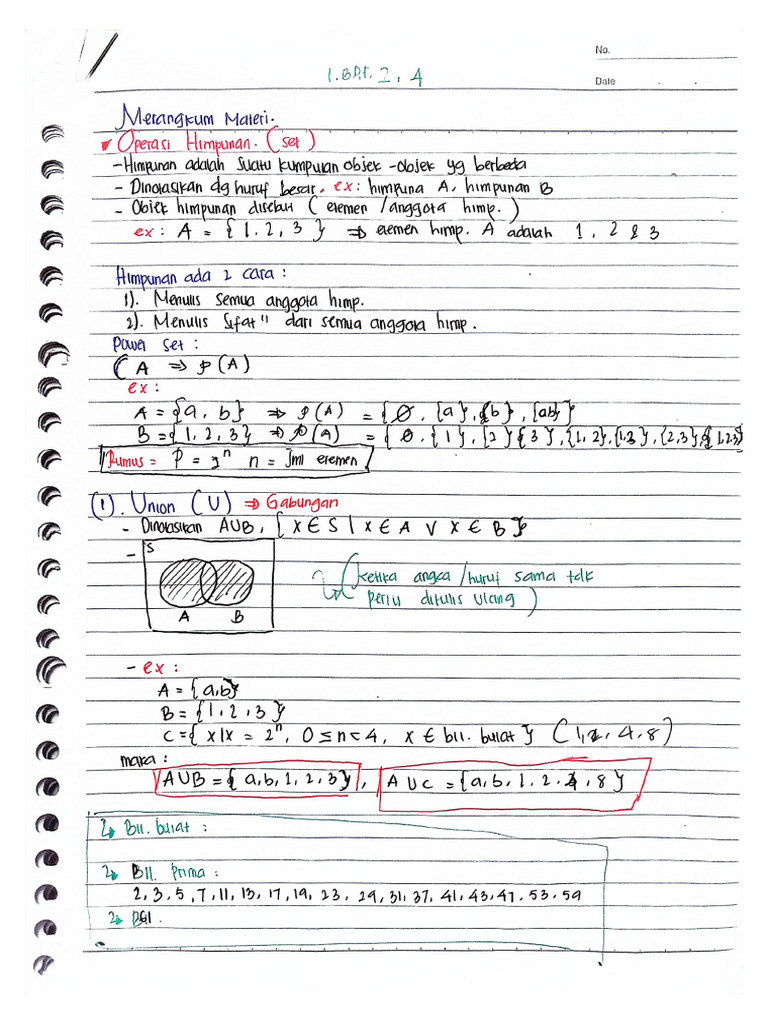 No.
Date
2, 4
Merangkum Materi.
Operasi Himpunan. (set)
- Himpunan adalah suatu kumpulan objek-objek yg berbeda
- Dinotasikan dg huruf besar. ex: himpuna A, himpunan B
- Objek himpunan disebut (elemen/anggota himp.)
ex: A = {1, 2, 3} ⇒ elemen himp. A adalah 1, 2 & 3
Himpunan ada 2 cara:
1). Menulis semua anggota himp.
2). Menulis sifat" dari semua anggota himp.
Power set:
(A ⇒ p(A)
ex:
A = {a, b} ⇒ p(A) = {∅, {a}, {b}, {ab}}
B = {1, 2, 3} ⇒ p(A) = {∅, {1}, {2} {3}, {1, 2}, {1,3}, {2,3}, {1,2,3}
Rumus = P = 2ⁿ n = Jml elemen
(1). Union (U) ⇒ Gabungan
- Dinotasikan AUB, {x ∈ S | x ∈ A V x ∈ B}
-
S
(ketika angka/huruf sama tdk
perlu ditulis ulang)
A B
- ex:
A = {a,b}
B = {1, 2, 3}
C = {x|x = 2ⁿ, 0 ≤ n < 4, x ∈ bil. bulat} (1, 2, 4, 8)
maka:
AUB = {a, b, 1, 2, 3}, AUC = {a, b, 1, 2, 4, 8}
Bil. bulat:
Bil. Prima:
2, 3, 5, 7, 11, 13, 17, 19, 23, 29, 31, 37, 41, 43, 47, 53, 59